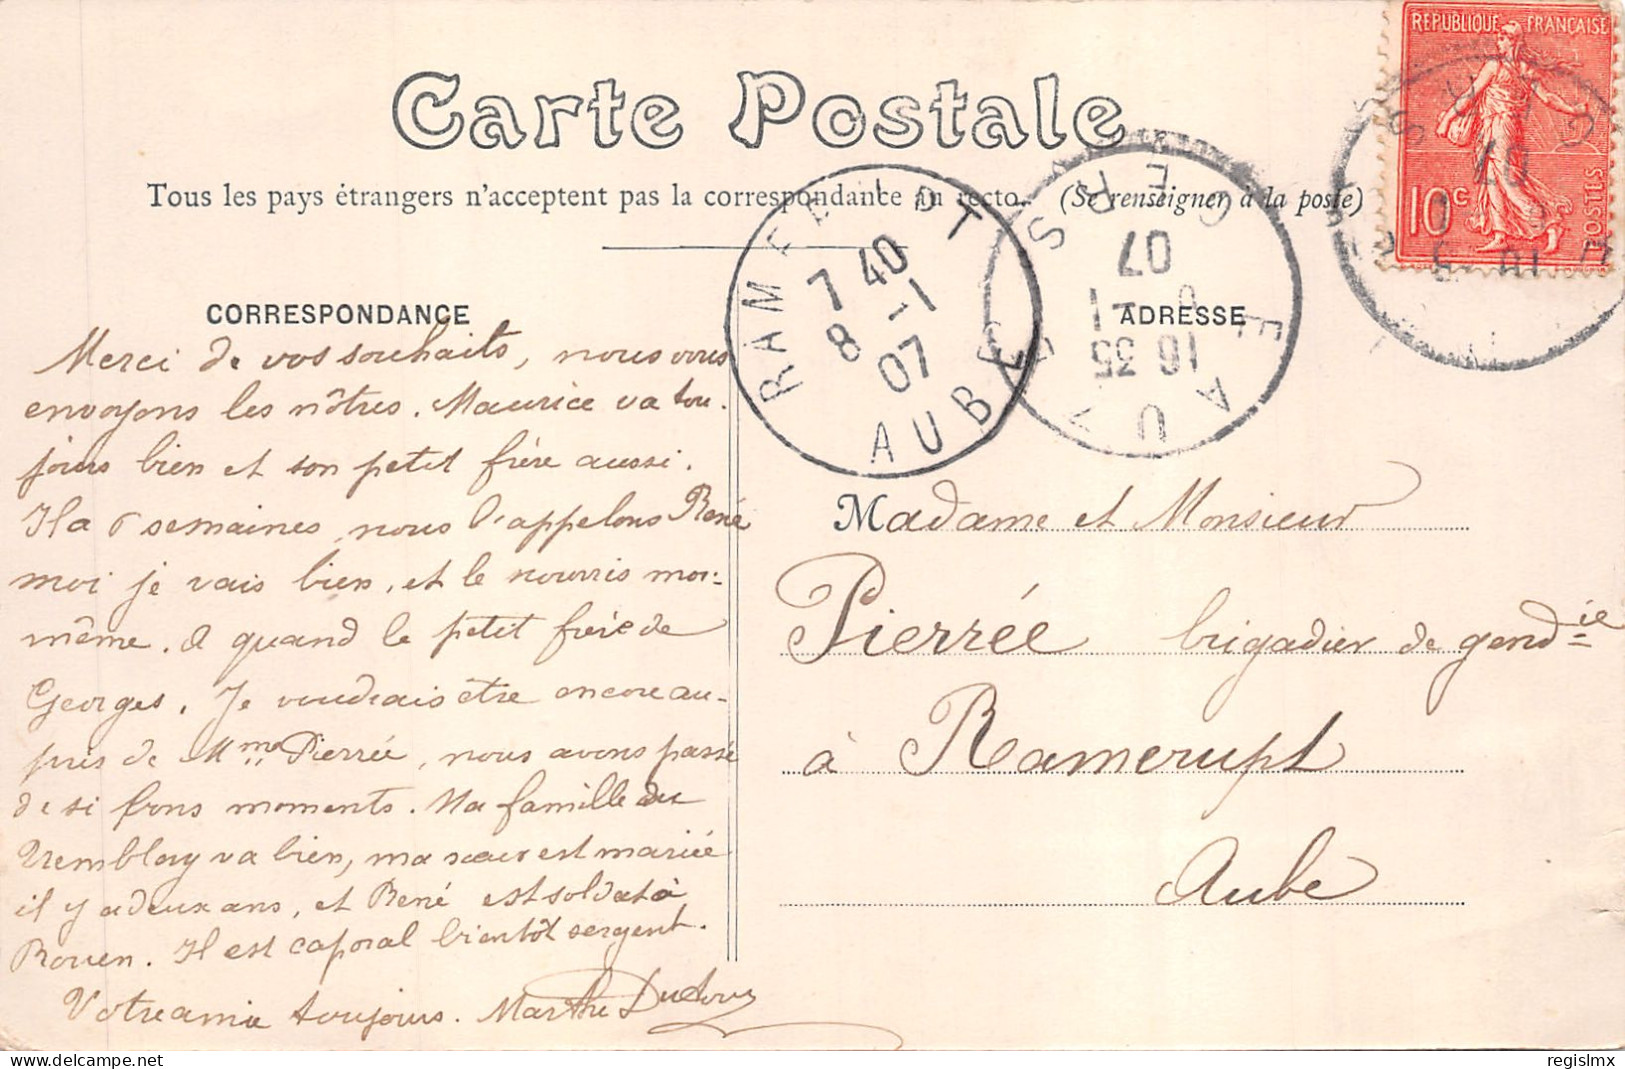 RÉPUBLIQUE FRANÇAISE
10c POSTES
Carte Postale
Tous les pays étrangers n'acceptent pas la correspondance au recto. (Se renseigner à la poste)
RAMERUPT
7 40
8 -1
07
AUBE
EAUZE
GERS
16 35
-1
07
CORRESPONDANCE
ADRESSE
Merci de vos souhaits, nous vous
envoyons les nôtres. Maurice va tou-
jours bien et son petit frère aussi.
Il a 6 semaines, nous l'appelons René
moi je vais bien, et le nourris moi-
même. A quand le petit frère de
Georges. Je voudrais être encore au-
près de Mme Pierrée, nous avons passé
de si bons moments. Ma famille du
Tremblay va bien, ma sœur est mariée
il y a deux ans, et René est soldat à
Rouen. Il est caporal bientôt sergent.
Votre amie toujours. Marthe
Madame et Monsieur
Pierrée brigadier de gendie
à Ramerupt
Aube
regislmx